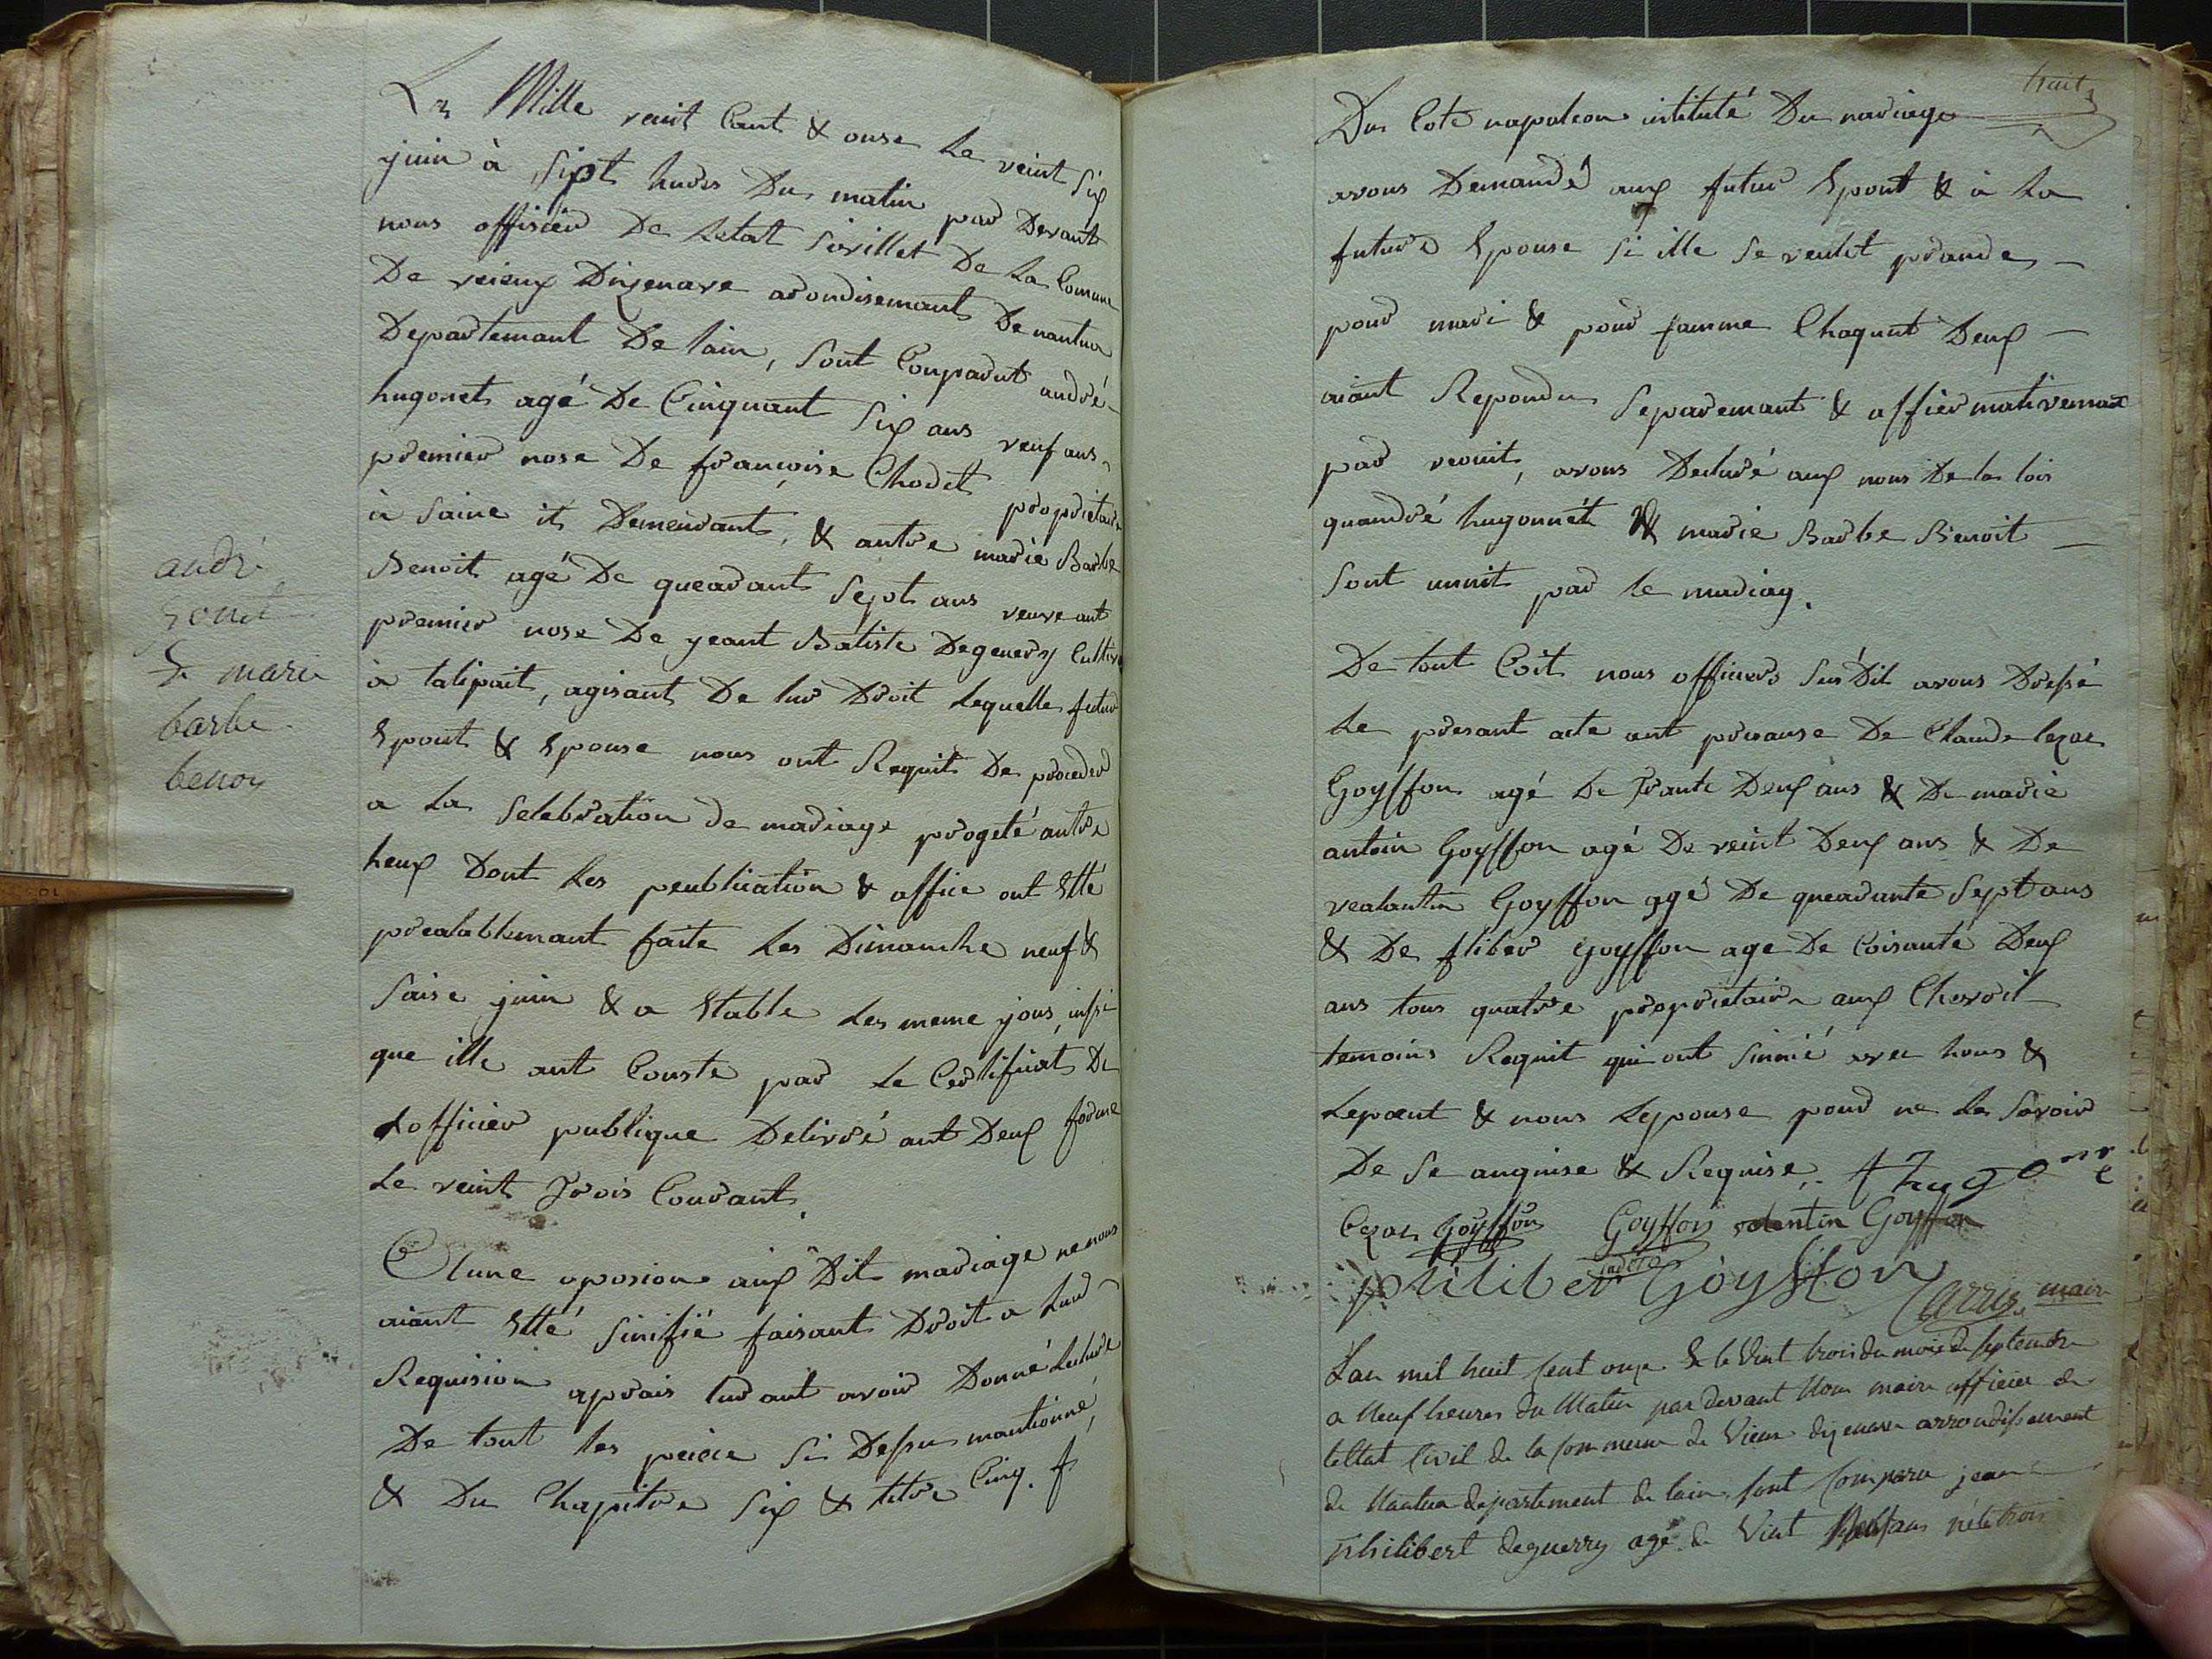 Lr Mille veuit Cant & onse Le veint Six
juin à Sipt hudes Du matin par Devant
nous offisiér De Letat Sivillet De La Comune
De vieux Dizenave arondisemant De nantua
Departemant De lain, Sont Comparut andré
hugonet agé De Cinquant Six ans veuf ans
premier nose De francoise Chodet proprietair
à Saine it Demeurant, & autre marie Barbe
Benoit agé De queadant Sept ans veuve ant
premier nose De jeant Batiste Deguery Cultiv
à talipait, agisant De lur Droit Lequelle futur
Epout & Epouse nous ont Requit De proceder
a La Selebration de mariage progeté antre
heux Dont Les peublication & affice ont Etté
prealablemant faite Les Dimanche neuf &
Saise juin & a Etable Les meme jous, insi
que ille ant Conste par Le Certificat De
Lofficier publique Delivré ant Deux forme
Le veint Trois Courant.
andré
gonet
& marie
barbe
benoy
Olune oposion aux Dit mariage ne nous
aiant Etté Sinifié faisant Droit a Lur
Requision aprais lur ant avoir Donné Lecture
De tout les peicie Si Desu mantionné,
& Du Chapitre Six & titre Cinq. f
huit
Du Cote napoleon intituté Du mariage
avons Demandé aux futur Epout & à La
future Epouse Si ille Se veulet prande
pour mari & pour famme Chaqunt Deux
aiant Repondu Separemant & affiermativemant
par veouit, avons Declaré aux nous De la lois
quandré hugonnét & marie Barbe Benoit
Sont unnit par le mariag.
De tout Coit nous officiers Sus Dit avons Dressé
Le presant acte ant presanse De Claude Cezar
Goyffon agé De Trante Deux ans & De marie
antoin Goyffon agé De veint Deux ans & De
vealantin Goyffon agé De queadante Sept ans
& De fliber Goyffon age De Coisante Deux
ans tous quatre proprietair aux Chevoil
temoins Requit qui ont Sinnié avec nous &
Lepoent & nous Lepouse pour ne La Savoir
De Se anquise & Requise. A hugonet
Cezar Goyffon Goyffon valentin Goyffon
philiber Goyffon
Carrus maire
Lan mil huit Cent onze & le Vint trois du mois de Septembre
a Neuf heures du Matin par devant Nous maire officier de
lettat Civil de la Commune de Vieux dizenave arrondissement
de Nantua departement de lain, Sont Comparu jean
Philibert deguerry agé de Vint ans né le trois